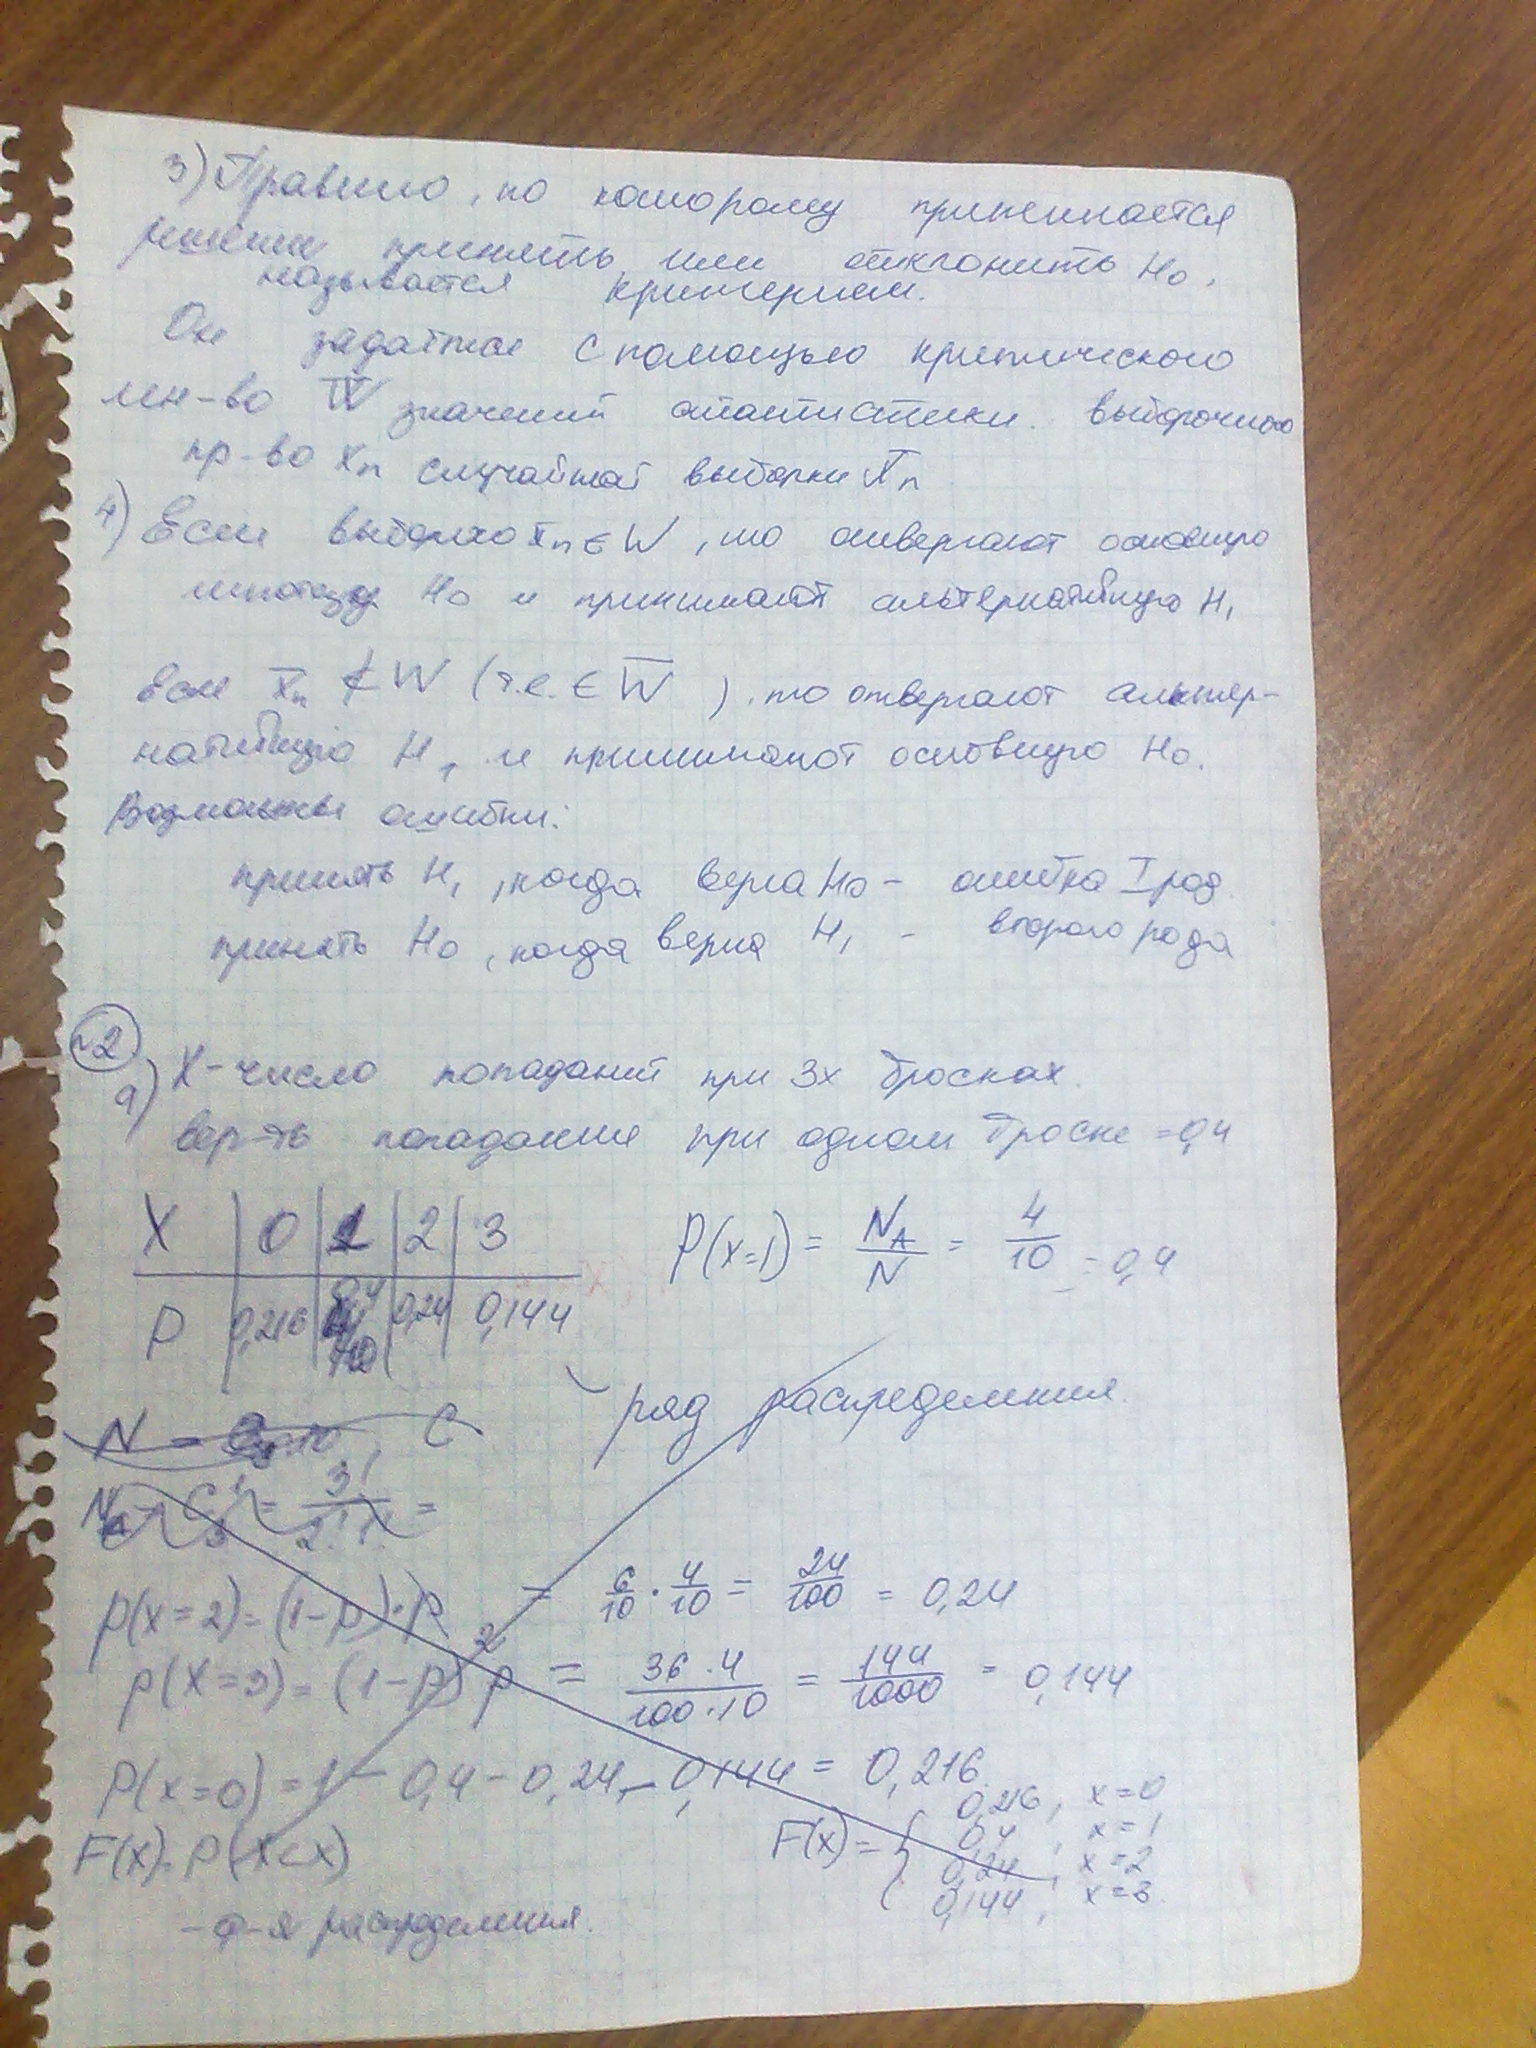 3) Правило, по которому принимается
решение принять или отклонить H₀,
называется критерием.
Он задаётся с помощью критического
мн-во W значений статистики выборочного
пр-во xₙ случайной выборки X̄ₙ
4) Если выборка x̄ₙ ∈ W, то отвергают основную
гипотезу H₀ и принимают альтернативную H₁
если x̄ₙ ∉ W (т.е. ∈ W̄), то отвергают альтер-
нативную H₁ и принимают основную H₀.
Возможные ошибки:
принять H₁, когда верна H₀ - ошибка I род.
принять H₀, когда верна H₁ - второго рода
№2
а) X - число попаданий при 3х бросках.
вер-ть попадания при одном броске = 0,4
X | 0 | 1 | 2 | 3
P | 0,216 | 0,4 | 0,24 | 0,144
P(x=1) = N_A/N = 4/10 = 0,4
ряд распределения.
N = 10, C
N_A = C₃¹ = 3!/2!1! =
p(x=2) = (1-p)·p = 6/10 · 4/10 = 24/100 = 0,24
p(X=3) = (1-p)² p = 36·4/100·10 = 144/1000 = 0,144
P(x=0) = 1 - 0,4 - 0,24 - 0,144 = 0,216.
F(x) = P(X<x)
F(x) = { 0,216, x=0
0,4, x=1
0,24, x=2
0,144, x=3.
- ф-я распределения.